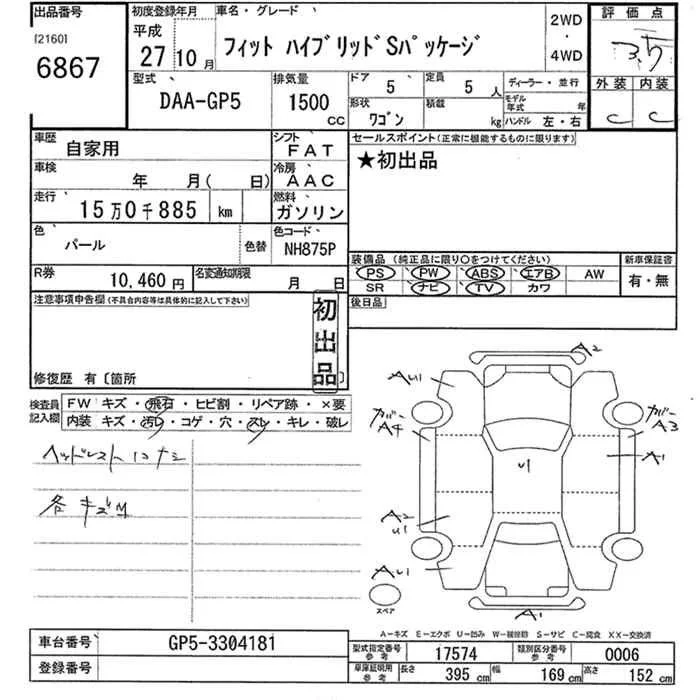 出品番号 初度登録年月 車名・グレード 評価点
[2160] 6867 平成 27 10月 フィット ハイブリッドSパッケージ 2WD ・ 4WD 3.5
型式 排気量 ドア 定員 ディーラー・並行 外装 内装
DAA-GP5 1500 CC 5 5人 モデル年式 年 C C
形状 ワゴン 積載 kg ハンドル 左・右
車歴 自家用 シフト FAT セールスポイント(正常に機能するものに限ります)
車検 年 月( 日) 冷房 AAC ★初出品
走行 15万0千885 km 燃料 ガソリン
色 パール 色替 色コード NH875P
装備品 (純正品に限り○をつけてください) 新車保証書
R券 10,460円 名変通知期限 月 日 PS PW ABS エアB AW 有・無
SR ナビ TV カワ
注意事項申告欄(不具合内容等は具体的に記入して下さい) 初出品 後日品
修復歴 有〔箇所 〕
検査員記入欄 FW キズ・飛石・ヒビ割・リペア跡・×要
内装 キズ・汚レ・コゲ・穴・スレ・キレ・破レ
ヘッドレスト
各キズ
A2
AU1
ガバー A4
ガバー A3
A1
U1
A2 U1
AU1
スペア
A1
A-キズ E-エクボ U-凹み W-補修跡 S-サビ C-腐食 XX-交換済
車台番号 GP5-3304181 型式指定番号 参考 17574 類別区分番号 参考 0006
登録番号 車庫証明用 参考 長さ 395 cm 幅 169 cm 高さ 152 cm